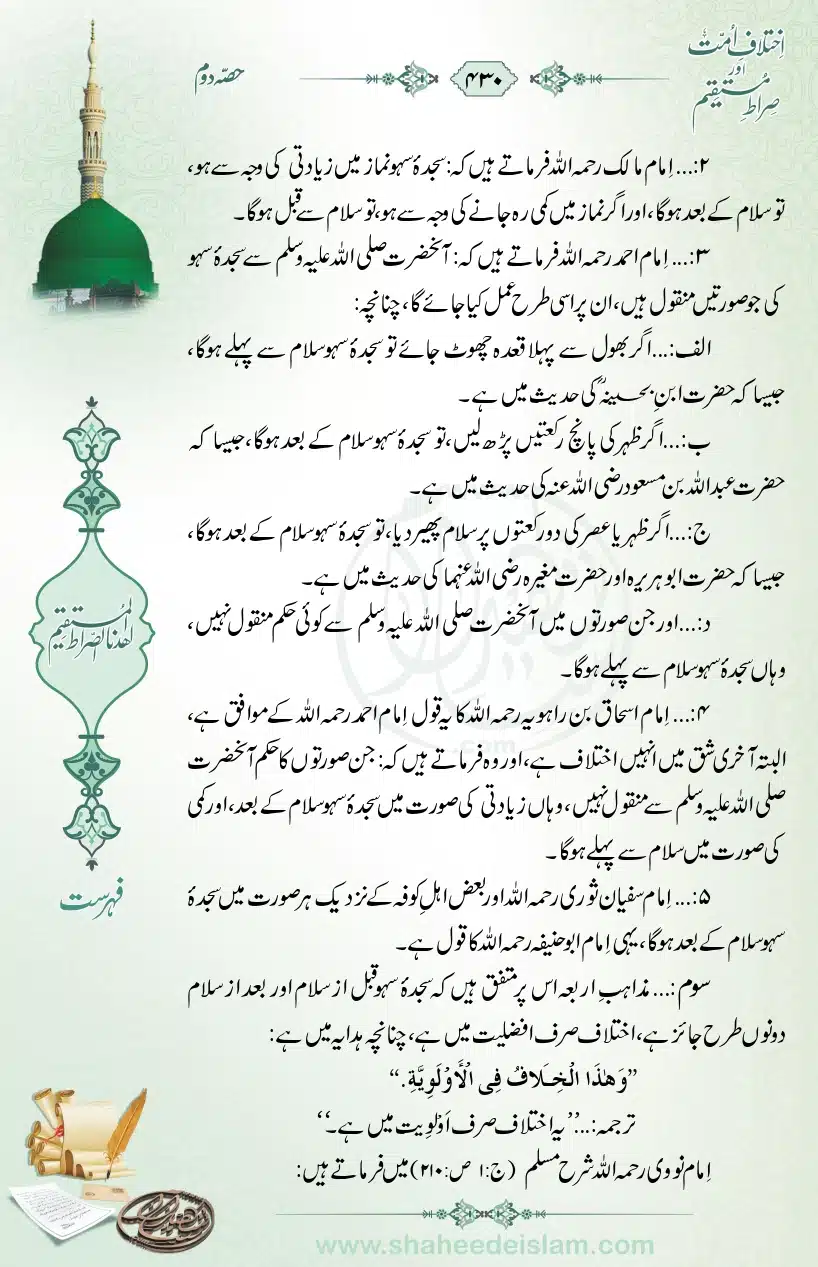 اِختلافِ اُمّت
اور
صِراطِ مُستقیم
۴۳۰
حصّہ دوم
۲:... اِمام مالک رحمہ اللہ فرماتے ہیں کہ: سجدۂ سہو نماز میں زیادتی کی وجہ سے ہو،
تو سلام کے بعد ہوگا، اور اگر نماز میں کمی رہ جانے کی وجہ سے ہو، تو سلام سے قبل ہوگا۔
۳:... اِمام احمد رحمہ اللہ فرماتے ہیں کہ: آنخضرت صلی اللہ علیہ وسلم سے سجدۂ سہو
کی جو صورتیں منقول ہیں، ان پر اسی طرح عمل کیا جائے گا، چنانچہ:
الف:... اگر بھول سے پہلا قعدہ چھوٹ جائے تو سجدۂ سہو سلام سے پہلے ہوگا،
جیسا کہ حضرت ابنِ بحسینہؓ کی حدیث میں ہے۔
ب:... اگر ظہر کی پانچ رکعتیں پڑھ لیں، تو سجدۂ سہو سلام کے بعد ہوگا، جیسا کہ
حضرت عبداللہ بن مسعود رضی اللہ عنہ کی حدیث میں ہے۔
ج:... اگر ظہر یا عصر کی دو رکعتوں پر سلام پھیر دیا، تو سجدۂ سہو سلام کے بعد ہوگا،
جیسا کہ حضرت ابوہریرہ اور حضرت مغیرہ رضی اللہ عنہما کی حدیث میں ہے۔
د:... اور جن صورتوں میں آنخضرت صلی اللہ علیہ وسلم سے کوئی حکم منقول نہیں،
وہاں سجدۂ سہو سلام سے پہلے ہوگا۔
۴:... اِمام اسحاق بن راہویہ رحمہ اللہ کا یہ قول اِمام احمد رحمہ اللہ کے موافق ہے،
البتہ آخری شق میں انہیں اختلاف ہے، اور وہ فرماتے ہیں کہ: جن صورتوں کا حکم آنخضرت
صلی اللہ علیہ وسلم سے منقول نہیں، وہاں زیادتی کی صورت میں سجدۂ سہو سلام کے بعد، اور کمی
کی صورت میں سلام سے پہلے ہوگا۔
۵:... اِمام سفیان ثوری رحمہ اللہ اور بعض اہلِ کوفہ کے نزدیک ہر صورت میں سجدۂ
سہو سلام کے بعد ہوگا، یہی اِمام ابوحنیفہ رحمہ اللہ کا قول ہے۔
سوم:... مذاہبِ اربعہ اس پر متفق ہیں کہ سجدۂ سہو قبل از سلام اور بعد از سلام
دونوں طرح جائز ہے، اختلاف صرف افضلیت میں ہے، چنانچہ ہدایہ میں ہے:
”وَهٰذَا الْخِلَافُ فِی الْأَوْلَوِیَّةِ.“
ترجمہ:... ’’یہ اختلاف صرف اَوْلویت میں ہے۔‘‘
اِمام نووی رحمہ اللہ شرح مسلم (ج:۱ ص:۲۱۰) میں فرماتے ہیں:
اهدنا الصّراط المُستقیم
فہرست
www.shaheedeislam.com